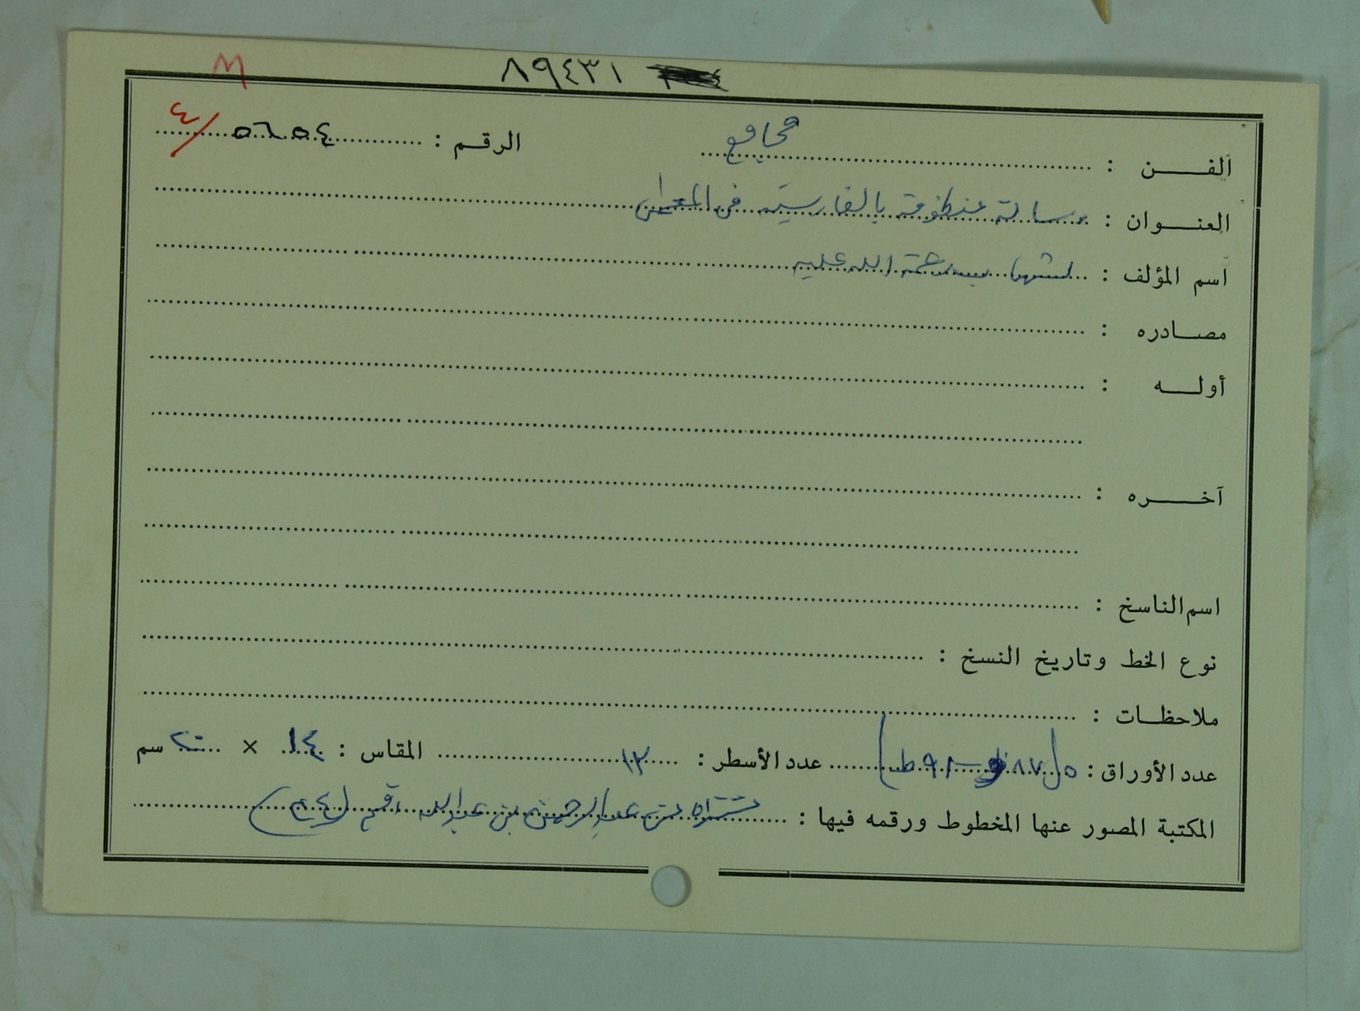 M ٨٩٤٣١
الفــن : مجاميع الرقم : ٥٦٥٤/٤
العنــوان : رسالة منظومة بالفارسية في المعمى
اسم المؤلف : لشهاب رحمة الله عليه
مصــادره :
أولــه :
آخــره :
اسم الناسخ :
نوع الخط وتاريخ النسخ :
ملاحظــات :
عدد الأوراق : ٥ (٨٧و - ٩١ظ) عدد الأسطر : ١٣ المقاس : ١٤ × ٢٠ سم
المكتبة المصور عنها المخطوط ورقمه فيها : شتراة من عبدالرحمن بن عبدالله رقم